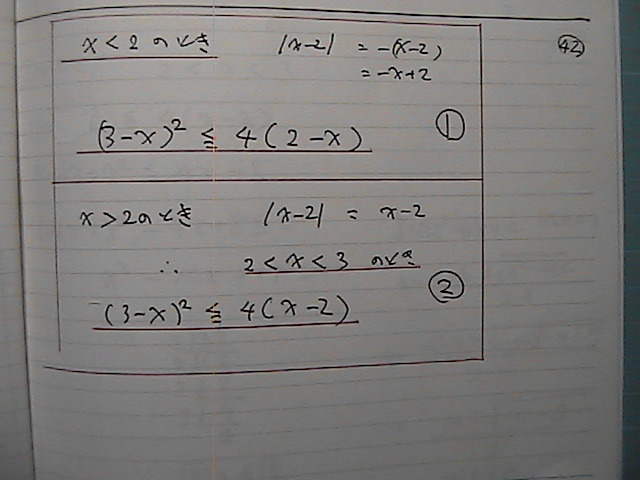 x<2のとき |x-2| = -(x-2)
= -x+2
(3-x)² ≦ 4(2-x) ①
x>2のとき |x-2| = x-2
∴ 2<x<3 のとき
(3-x)² ≦ 4(x-2) ②
㊷